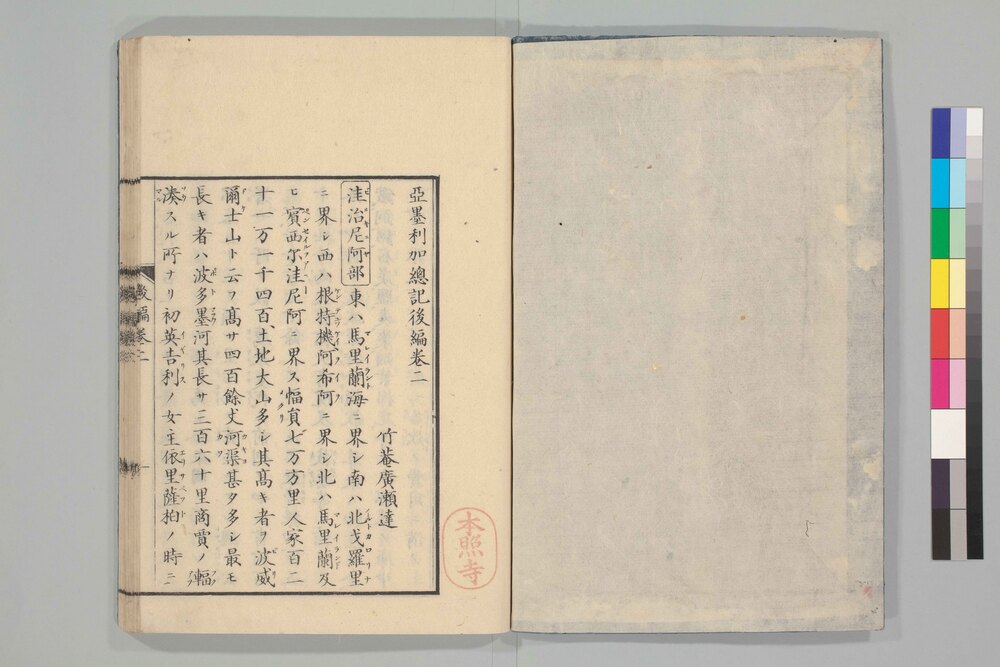 亞墨利加總記後編卷二
竹菴廣瀨達
洼治尼阿部東ハ馬里蘭海ニ界シ南ハ北戈羅里
ニ界シ西ハ根特機阿希阿ニ界シ北ハ馬里蘭及
ヒ賓西尔洼尼阿ニ界ス幅員七万方里人家百二
十一万一千四百土地大山多シ其髙キ者ヲ波威
爾士山ト云フ髙サ四百餘丈河渠甚タ多シ最モ
長キ者ハ波多墨河其長サ三百六十里商賈ノ輻
湊スル所ナリ初英吉利ノ女主依里薩柏ノ時ニ
後編卷二
一
本照寺